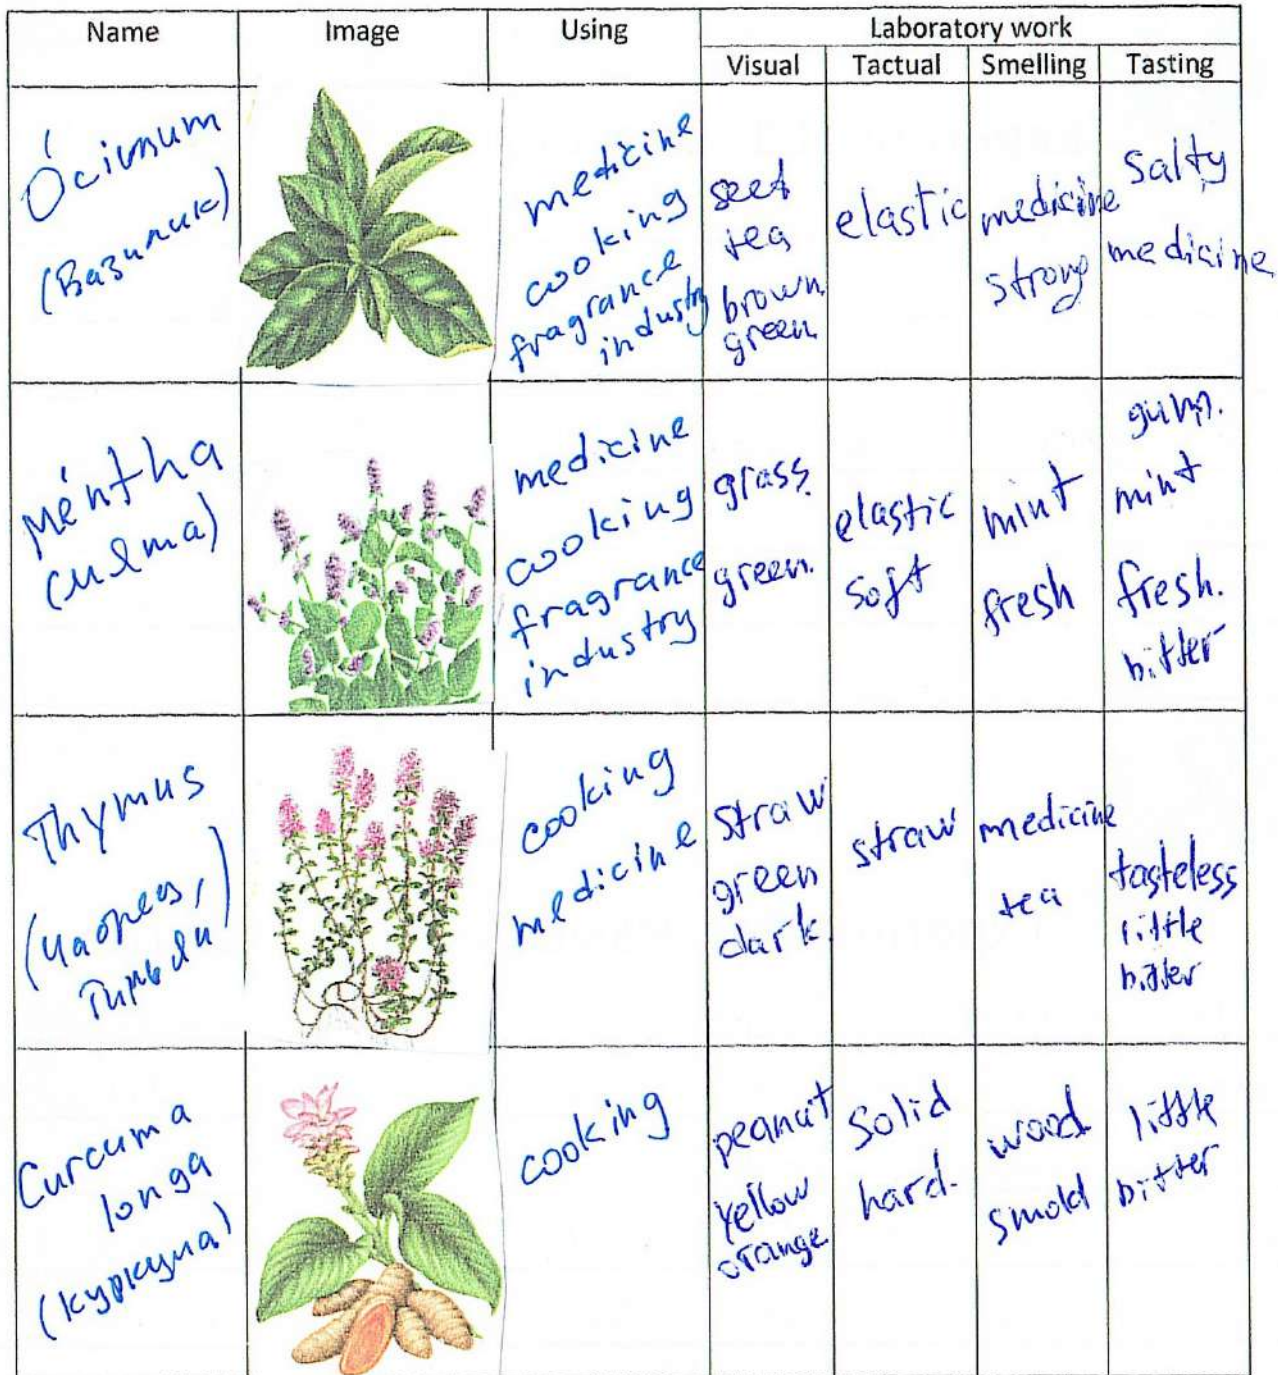 Name Image Using Laboratory work
Visual Tactual Smelling Tasting
Ócimum
(Базилик)
medicine
cooking
fragrance
industry
seed
tea
brown
green
elastic
medicine
strong
Salty
medicine
Méntha
(мята)
medicine
cooking
fragrance
industry
grass.
green.
elastic
soft
mint
fresh
gum.
mint
fresh.
bitter
Thymus
(Чабрец,
Тимьян)
cooking
medicine
straw
green
dark.
straw
medicine
tea
tasteless
little
bitter
Curcuma
longa
(куркума)
cooking
peanut
yellow
orange
Solid
hard.
wood
little
bitter